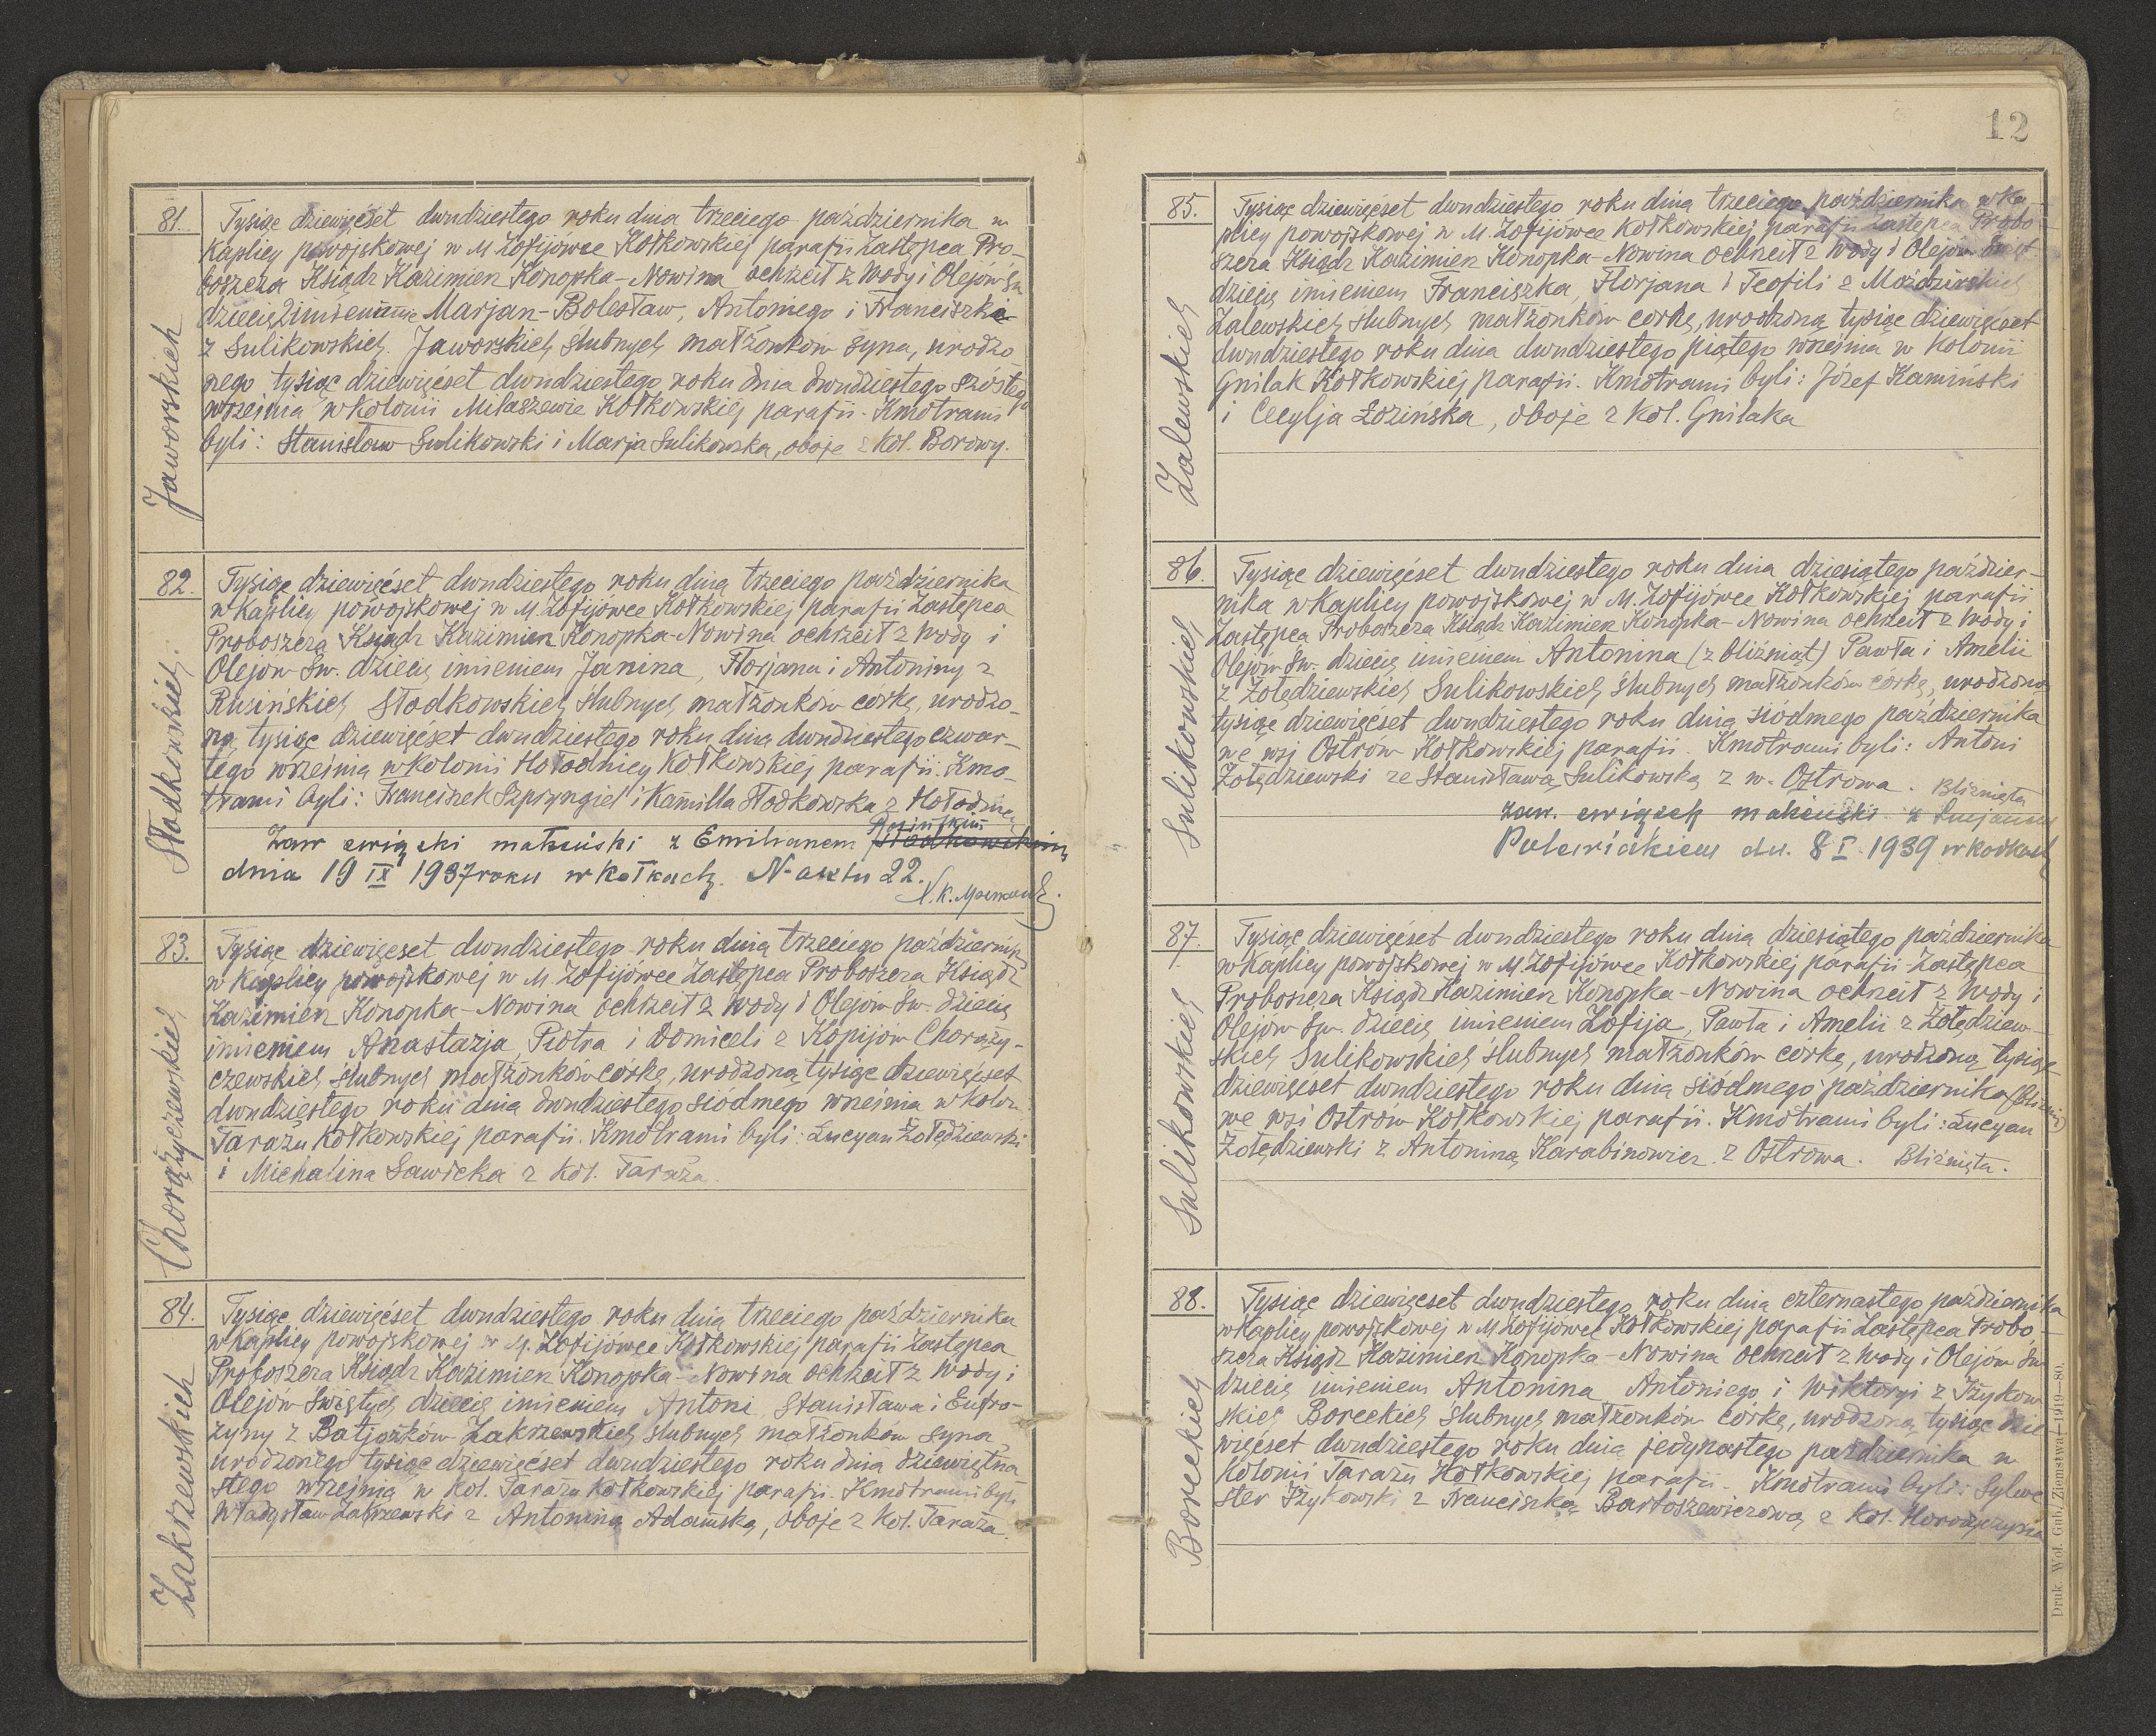 81.
Jaworskich
Tysiąc dziewięćset dwudziestego roku dnia trzeciego października w
Kaplicy powojskowej w M. Zofijówce Kołkowskiej parafii Zastępca Pro-
boszcza Ksiądz Kazimierz Konopka-Nowina ochrzcił z Wody i Olejów Św
dziecię 2 imieniem Marjan-Bolesław, Antoniego i Franciszki
z Sulikowskich Jaworskich ślubnych małżonków syna, urodzo
nego tysiąc dziewięćset dwudziestego roku dnia dwudziestego szóstego
września w kolonii Miłaszewie Kołkowskiej parafii. Kmotrami
byli: Stanisław Sulikowski i Marja Sulikowska, oboje z kol. Borowy.
82.
Słodkowskich
Tysiąc dziewięćset dwudziestego roku dnia trzeciego października
w Kaplicy powojskowej w M. Zofijówce Kołkowskiej parafii Zastępca
Proboszcza Ksiądz Kazimierz Konopka-Nowina ochrzcił z Wody i
Olejów Św. dziecię imieniem Janina, Florjana i Antoniny z
Rusińskich Słodkowskich ślubnych małżonków córkę, urodzo-
ną tysiąc dziewięćset dwudziestego roku dnia dwudziestego czwar-
tego września w kolonii Hołodnicy Kołkowskiej parafii. Kmo-
trami byli: Franciszek Szpryngiel i Kamilla Słodkowska z Hołodnicy
Rusińskim
Zaw związki małżeński z Emilianem Słodkowskim
dnia 19 IX 1937 roku w Kołkach. N aktu 22.
83.
Chorążyczewskich
Tysiąc dziewięćset dwudziestego roku dnia trzeciego październik
w Kaplicy powojskowej w M. Zofijówce Zastępca Proboszcza Ksiądz
Kazimierz Konopka-Nowina ochrzcił z Wody i Olejów Św. dziecię
imieniem Anastazja Piotra i Domiceli z Kopijów Chorąży-
czewskich ślubnych małżonków córkę, urodzoną tysiąc dziewięćset
dwudziestego roku dnia dwudziestego siódmego września w kolon.
Tarażu Kołkowskiej parafii. Kmotrami byli: Lucyan Żołędziewski
i Michalina Sawicka z kol. Taraża
84.
Zakrzewskich
Tysiąc dziewięćset dwudziestego roku dnia trzeciego października
w Kaplicy powojskowej w M. Zofijówce Kołkowskiej parafii Zastępca
Proboszcza Ksiądz Kazimierz Konopka-Nowina ochrzcił z Wody i
Olejów Świętych dziecię imieniem Antoni Stanisława i Eufro-
zyny z Batjożków Zakrzewskich ślubnych małżonków syna
urodzonego tysiąc dziewięćset dwudziestego roku dnia dziewiętna
stego września w kol. Tarażu Kołkowskiej parafii. Kmotrami byli
Władysław Zakrzewski z Antoniną Adamską, oboje z kol. Taraża.
12
85.
Zalewskich
Tysiąc dziewięćset dwudziestego roku dnia trzeciego października w Ka
plicy powojskowej w M. Zofijówce Kołkowskiej parafii Zastępca Probo
szcza Ksiądz Kazimierz Konopka-Nowina ochrzcił z Wody i Olejów Świąt.
dziecię imieniem Franciszka, Florjana i Teofili z Moździrskich
Zalewskich ślubnych małżonków córkę, urodzoną tysiąc dziewięćset
dwudziestego roku dnia dwudziestego piątego września w Kolonii
Gnilak Kołkowskiej parafii. Kmotrami byli: Józef Kamiński
i Cecylja Łozińska, oboje z kol. Gnilaka
86.
Sulikowskich
Tysiąc dziewięćset dwudziestego roku dnia dziesiątego paździer-
nika w Kaplicy powojskowej w M. Zofijówce Kołkowskiej parafii
Zastępca Proboszcza Ksiądz Kazimierz Konopka-Nowina ochrzcił z Wody i
Olejów Św. dziecię imieniem Antonina (z bliźniąt) Pawła i Amelii
z Żołędziewskich Sulikowskich ślubnych małżonków córkę, urodzoną
tysiąc dziewięćset dwudziestego roku dnia siódmego października
we wsi Ostrów Kołkowskiej parafii. Kmotrami byli: Antoni
Żołędziewski ze Stanisławą Sulikowską z w. Ostrowa. Bliźnięta
zaw. związek małżeński z Lucjanem
dn. 8 I 1939 w Kołkach
87.
Sulikowskich
Tysiąc dziewięćset dwudziestego roku dnia dziesiątego października
w Kaplicy powojskowej w M. Zofijówce Kołkowskiej parafii Zastępca
Proboszcza Ksiądz Kazimierz Konopka-Nowina ochrzcił z Wody i
Olejów Św. dziecię imieniem Zofija, Pawła i Amelii z Żołędziew-
skich Sulikowskich ślubnych małżonków córkę, urodzoną tysiąc
dziewięćset dwudziestego roku dnia siódmego października (bliźnię)
we wsi Ostrów Kołkowskiej parafii. Kmotrami byli: Lucyan
Żołędziewski z Antoniną Karabinowicz z Ostrowa. Bliźnięta.
88.
Boreckich
Tysiąc dziewięćset dwudziestego roku dnia czternastego października
w Kaplicy powojskowej w M. Zofijówce Kołkowskiej parafii Zastępca Probo
szcza Ksiądz Kazimierz Konopka-Nowina ochrzcił z Wody i Olejów Św
dziecię imieniem Antonina Antoniego i Wiktoryi z Iżykow
skich Boreckich ślubnych małżonków córkę, urodzoną tysiąc dzie
więćset dwudziestego roku dnia jedynastego października w
Kolonii Tarażu Kołkowskiej parafii. Kmotrami byli: Sylwe
ster Iżykowski z Franciszką Bartoszewiczową z kol. Horodyszcza
Druk. Woł. Gub. Ziemstwa.—1919—80.